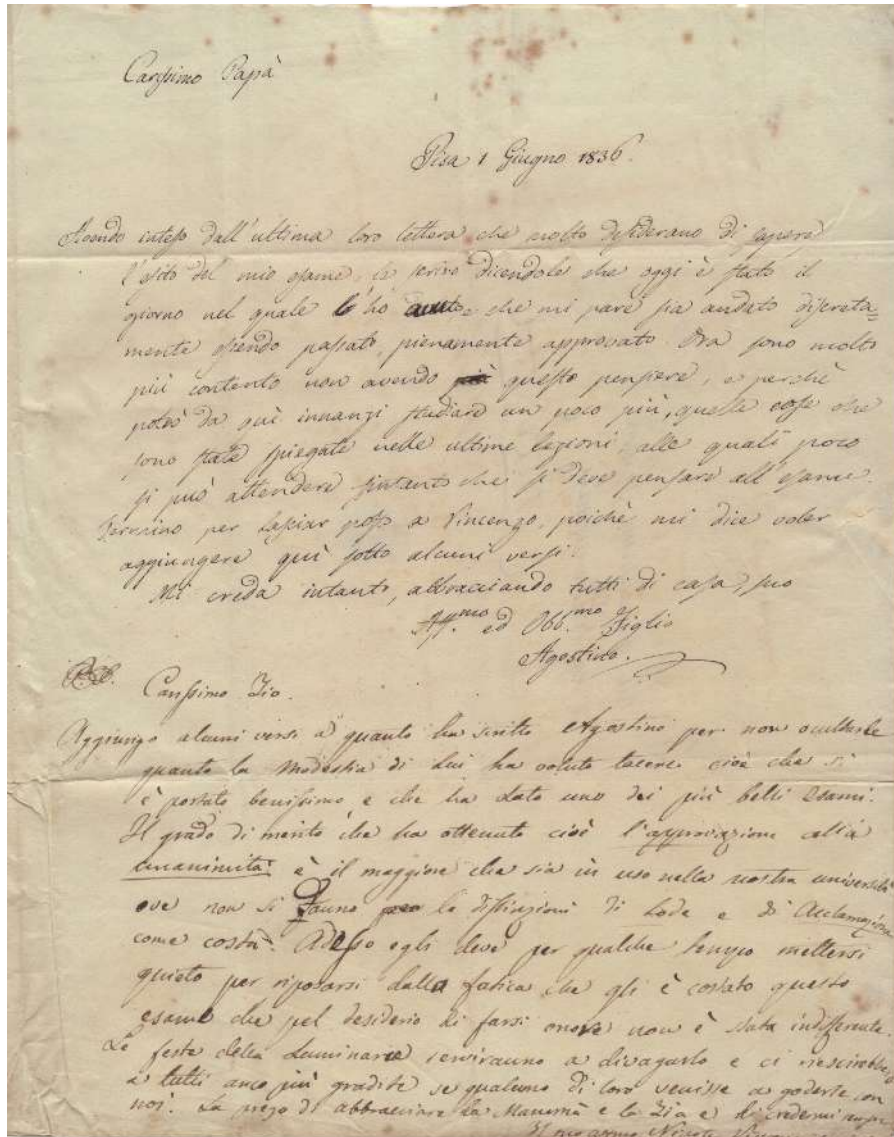 Carissimo Papà
Pisa 1 Giugno 1836.
Avendo inteso dall'ultima loro lettera che molto desiderano di sapere
l'esito del mio esame, le scrivo dicendole che oggi è stato il
giorno nel quale l'ho avuto e che mi pare sia andato discreta=
mente essendo passato pienamente approvato. Ora sono molto
più contento non avendo più questo pensiere, e perchè
potrò da quì innanzi studiare un poco più, quelle cose che
sono state spiegate nelle ultime lezioni, alle quali poco
si può attendere sintanto che si deve pensare all'esame.
Termino per lasciar posto a Vincenzo, poichè mi dice voler
aggiungere quì sotto alcuni versi.
Mi creda intanto, abbracciando tutti di casa, suo
Aff.mo ed Obb.mo Figlio
Agostino.
P.S. Carissimo Zio.
Aggiungo alcuni versi a quanto ha scritto Agostino per non occultarle
quanto la modestia di Lui ha voluto tacere cioè che si
è portato benissimo e che ha dato uno dei più belli Esami.
Il grado di merito che ha ottenuto cioè l'approvazione all'a
unanimità è il maggiore che sia in uso nella nostra università
ove non si Danno le distinzioni di Lode e di Acclamazione
come costà. Adesso egli deve per qualche tempo mettersi
quieto per riposarsi dalla fatica che gli è costato questo
esame che pel desiderio di farsi onore non è stata indifferente.
Le feste della Luminara serviranno a divagarlo e ci riescirebbero
a tutti anco più gradite se qualcuno di loro venisse a goderle con
noi. La prego di abbracciare la Mamma e la Zia e di credermi
Il suo affmo Nipote